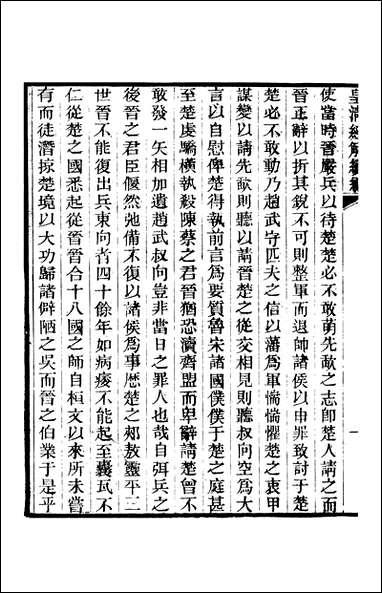 皇清經解續編
使當時晉嚴兵以待楚楚必不敢萌先歃之志卽楚人請之而
晉正辭以折其銳不可則整軍而退師諸侯以申罪致討于楚
楚必不敢動乃趙武守匹夫之信以藩爲軍惴惴懼楚之衷甲
謀變以請先歃則聽以請晉楚之從交相見則聽叔向空爲大
言以自慰俾楚得執前言爲要質魯宋諸國僕僕于楚之庭甚
至楚虔驕橫執殺陳蔡之君晉猶恐瀆齊盟而卑辭請楚曾不
敢發一矢相加遺趙武叔向豈非當日之罪人也哉自弭兵之
後晉之君臣偃然弛備不復以諸侯爲事厯楚之郟敖靈平三
世晉不能復出兵東向者四十餘年如病痿不能起至囊瓦不
仁從楚之國悉起從晉晉合十八國之師自桓文以來所未嘗
有而徒潛掠楚境以大功歸諸僻陋之吳而晉之伯業于是乎
一